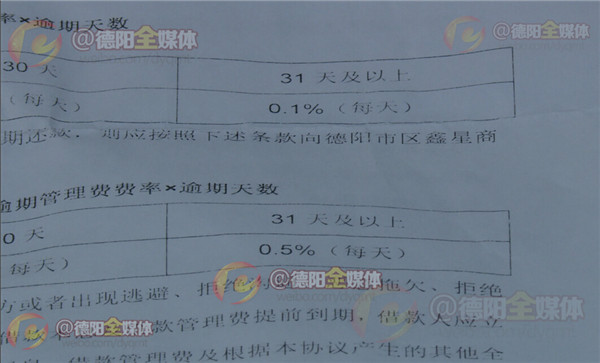 率×逾期天数
@德阳全媒体
30 天 31 天及以上
（每天） 0.1%（每天）
期还款，则应按照下述条款向德阳市区鑫星商
逾期管理费费率×逾期天数
0 天 31 天及以上
每天） 0.5%（每天）
@德阳全媒体
方或者出现逃避、拒绝 拖欠、拒绝
@德阳全媒体 @德阳全媒体
款管理费提前到期，借款人应立
借款管理费及根据本协议产生的其他全